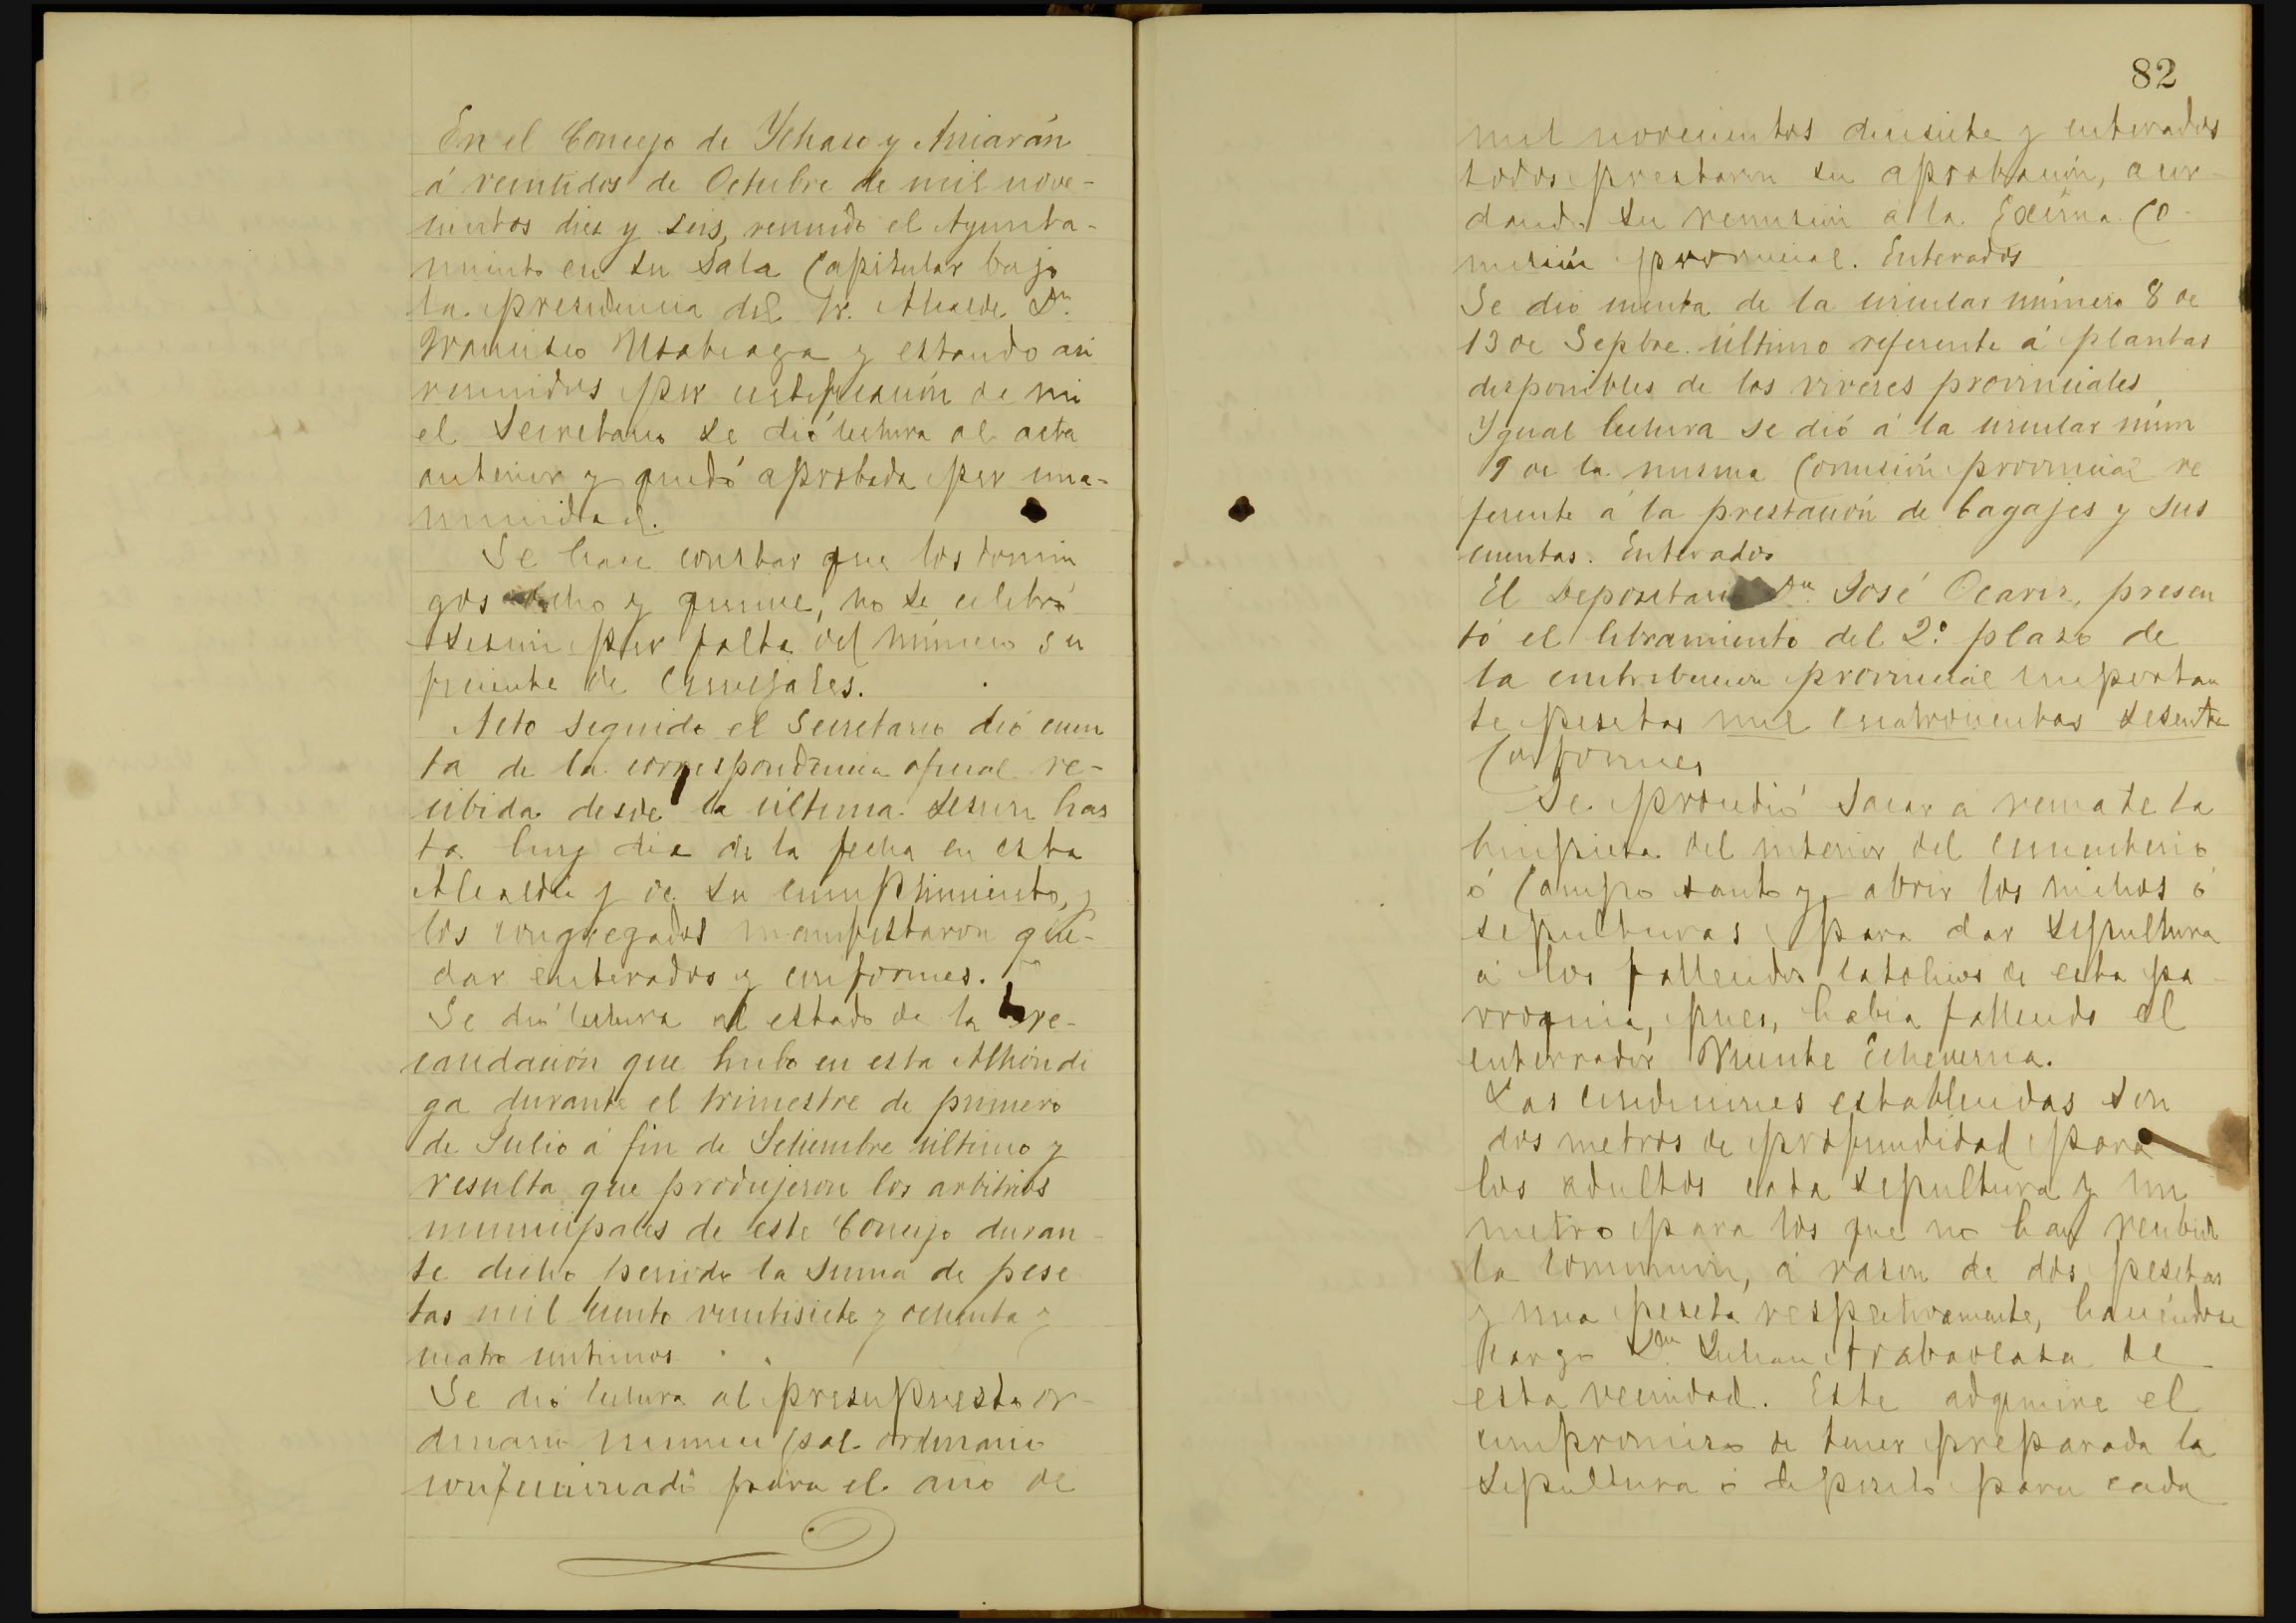 En el Concejo de Ychaso y Arriarán
á veintidos de Octubre de mil nove-
cientos diez y seis, reunido el Ayunta-
miento en su Sala Capitular bajo
la presidencia del Sr. Alcalde Dn.
Francisco Usabiaga y estando asi
reunidos por certificación de mi
el Secretario se dió lectura al acta
anterior y quedó aprobada por una-
nimidad.
Se hace constar que los domin
gos ocho y quince, no se celebró
sesion por falta del número su
ficiente de Concejales.
Acto seguido el Secretario dió cuen
ta de la correspondencia oficial re-
cibida desde la última sesion has
ta hoy dia de la fecha en esta
Alcaldia y de su cumplimiento, y
los congregados manifestaron que-
dar enterados y conformes.
Se dió lectura al estado de la re-
caudación que hubo en esta Alhóndi
ga durante el trimestre de primero
de Julio á fin de Setiembre último y
resulta que produjeron los arbitrios
municipales de este Concejo duran
te dicho periodo la suma de pese
tas mil ciento veintisiete y ochenta y
cuatro centimos
Se dió lectura al presupuesto or-
dinario municipal ordinario
confeccionado para el año de
82
mil novecientos diecisiete y enterados
todos prestaron su aprobación, acor
dando su remision á la Excma. Co-
misión provincial. Enterados
Se dió cuenta de la circular número 8 de
13 de Sepbre. último referente á plantas
disponibles de los viveres provinciales
Ygual lectura se dió á la circular núm
9 de la misma Comisión provincial re
ferente á la prestación de bagajes y sus
cuentas. Enterados
El Depositario Dn. José Ocariz, presen
tó el libramiento del 2.º plazo de
la contribucion provincial importan
te pesetas mil cuatrocientas sesenta
Conformes
Se procedió sacar a remate la
limpieza del interior del Cementerio
ó Campo santo y abrir los nichos ó
sepulturas para dar sepultura
á los fallecidos catolicos de esta pa
rroquia, pues, habia fallecido el
enterrador Vicente Echeverria.
Las condiciones establecidas son
dos metros de profundidad para
los adultos cada sepultura y un
metro para los que no han recibido
la comunion, á razon de dos pesetas
y una peseta respectivamente, haciéndose
cargo Dn. Julian de
esta vecindad. Este adquiere el
compromiso de tener preparada la
sepultura ó deposito para cada